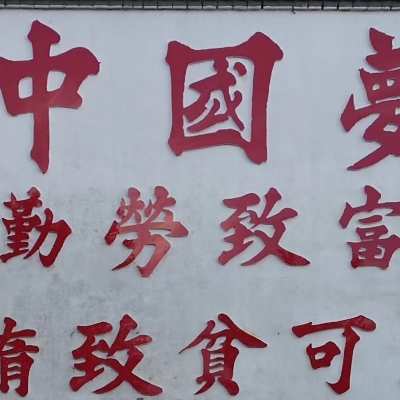 中國夢
勤勞致富
惰致貧可